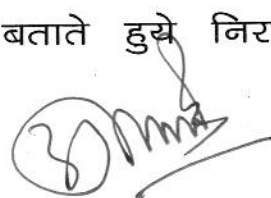 बताते हुये निर